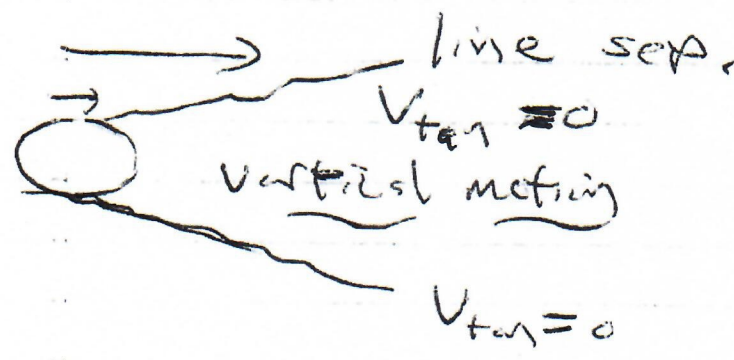 line sep.
V_tan = 0
vortical motion
V_tan = 0